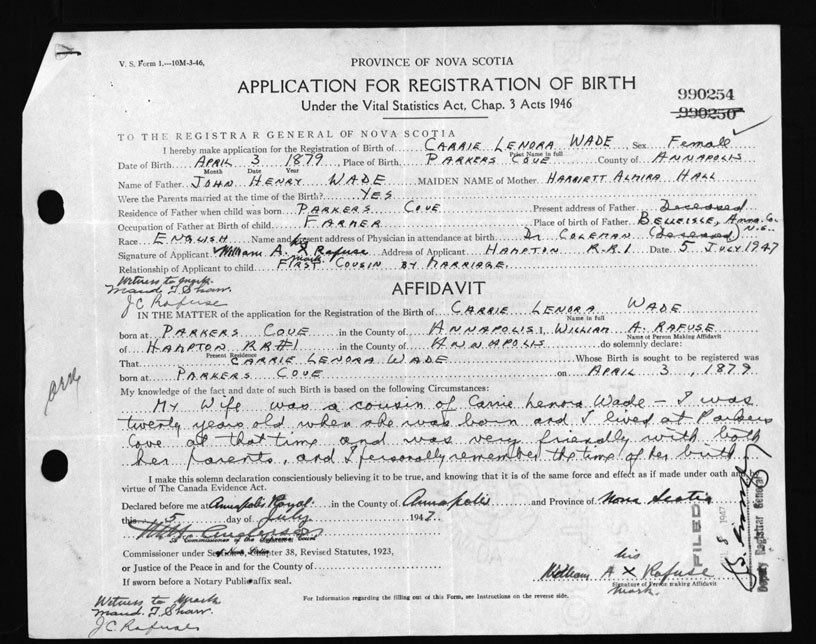 V. S. Form 1.—10M-3-46,
PROVINCE OF NOVA SCOTIA
APPLICATION FOR REGISTRATION OF BIRTH
Under the Vital Statistics Act, Chap. 3 Acts 1946
990254
990250
TO THE REGISTRAR GENERAL OF NOVA SCOTIA
I hereby make application for the Registration of Birth of CARRIE LENORA WADE Sex Female
Print Name in full
Date of Birth APRIL 3 1879 Place of Birth PARKERS COVE County of ANNAPOLIS
Month Date Year
Name of Father JOHN HENRY WADE MAIDEN NAME of Mother HARRIETT ALMIRA HALL
Were the Parents married at the time of the Birth? YES
Residence of Father when child was born PARKERS COVE Present address of Father Deceased
Occupation of Father at Birth of child FARMER Place of birth of Father BELLEISLE, Anna Co. N.S.
Race ENGLISH Name and present address of Physician in attendance at birth Dr COLEMAN (Deceased)
Signature of Applicant William A. his X mark Rafuse Address of Applicant HAMPTON R.R.1 Date 5 JULY 1947
Relationship of Applicant to child FIRST COUSIN BY MARRIAGE
Witness to mark
Maud. T. Shaw.
J C Rafuse
AFFIDAVIT
IN THE MATTER of the application for the Registration of the Birth of CARRIE LENORA WADE
Name in full
born at PARKERS COVE in the County of ANNAPOLIS I, WILLIAM A. RAFUSE
Name of Person Making Affidavit
of HAMPTON RR#1 in the County of ANNAPOLIS do solemnly declare:
Present Residence
That CARRIE LENORA WADE Whose Birth is sought to be registered was
born at PARKERS COVE on APRIL 3, 1879
My knowledge of the fact and date of such Birth is based on the following Circumstances:
My Wife was a cousin of Carrie Lenora Wade — I was
twenty years old when she was born and I lived at Parkers
Cove at that time and was very friendly with both
her parents, and I personally remember the time of her birth.
I make this solemn declaration conscientiously believing it to be true, and knowing that it is of the same force and effect as if made under oath and
virtue of The Canada Evidence Act.
Declared before me at Annapolis Royal in the County of Annapolis and Province of Nova Scotia
this 5 day of July 1947
A Commissioner of the Supreme Court
of Nova Scotia
Commissioner under Section, Chapter 38, Revised Statutes, 1923,
or Justice of the Peace in and for the County of
If sworn before a Notary Public affix seal.
William A his X mark Rafuse
Signature of Person making Affidavit
For Information regarding the filling out of this Form, see Instructions on the reverse side.
Witness to Mark
Maud. T. Shaw.
J C Rafuse
FILED
8 1947
Deputy Registrar General